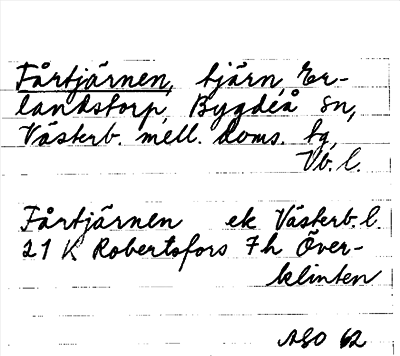 Fårtjärnen, tjärn, Er-
landstorp, Bygdeå sn,
Västerb. mell. doms. tg,
Vb. l.
Fårtjärnen ek Västerb. l.
21 K Robertsfors 7 h Över-
klinten
ASO 62